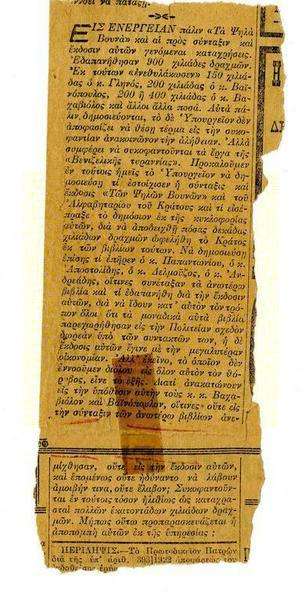 ΕΙΣ ΕΝΕΡΓΕΙΑΝ πάλιν «Τὰ Ψηλὰ
Βουνὰ» καὶ αἱ πρὸς σύνταξιν καὶ
ἔκδοσιν αὐτῶν γενόμεναι καταχρήσεις.
Ἐδαπανήθησαν 900 χιλιάδες δραχμῶν.
Ἐκ τούτων «ἐνεθυλάκωσεν» 150 χιλιά-
δας ὁ κ. Γληνός, 200 χιλιάδας ὁ κ. Βαϊ-
νόπουλος, 200 ἢ 400 χιλιάδας ὁ κ. Βα-
χαβιόλος καὶ ἄλλοι ἄλλα ποσά. Αὐτὰ πά-
λιν, δημοσιεύονται, τὸ δὲ Ὑπουργεῖον δὲν
ἀποφασίζει νὰ θέσῃ τέρμα εἰς τὴν συκο-
φαντίαν ἀνακοινῶνον τὴν ἀλήθειαν. Ἀλλὰ
συμφέρει νὰ συκοφαντοῦνται τὰ ἔργα τῆς
«Βενιζελικῆς τυραννίας». Προκαλοῦμεν
ἐν τούτοις ἡμεῖς τὸ Ὑπουργεῖον νὰ δη-
μοσιεύσῃ τί ἐστοίχισεν ἡ σύνταξις καὶ
ἔκδοσις «Τῶν Ψηλῶν Βουνῶν» καὶ τοῦ
Ἀλφαβηταρίου τοῦ Κράτους καὶ τί εἰσέ-
πραξε τὸ δημόσιον ἐκ τῆς κυκλοφορίας
αὐτῶν, διὰ νὰ ἀποδειχθῇ πόσας δεκάδας
χιλιάδων δραχμῶν ὠφελήθη τὸ Κράτος
ἐκ τῶν βιβλίων τούτων. Νὰ δημοσιεύσῃ
ἐπίσης τί ἐπῆρεν ὁ κ. Παπαντωνίου, ὁ κ.
Ἀποστολίδης, ὁ κ. Δελμοῦζος, ὁ κ. Ἀν-
δρεάδης, οἵτινες συνέταξαν τὰ ἀνωτέρω
βιβλία καὶ τί ἐδαπανήθη διὰ τὴν ἔκδοσιν
αὐτῶν, διὰ νὰ ἴδουν κατ' αὐτὸν τὸν τρό-
πον ὅλοι ὅτι τὰ μοναδικὰ αὐτὰ βιβλία
παρεχωρήθησαν εἰς τὴν Πολιτείαν σχεδὸν
δωρεὰν ὑπὸ τῶν συντακτῶν των, ἡ δὲ
ἔκδοσις αὐτῶν ἔγινε μὲ τὴν μεγαλυτέραν
οἰκονομίαν. Ἀλλ' ἐκεῖνο, τὸ ὁποῖον δὲν
ἐννοοῦμεν διόλου εἰς ὅλον αὐτὸν τὸν θό-
ρυβον, εἶνε τὸ ἑξῆς. Διατί ἀνακατώνουν
εἰς τὴν ὑπόθεσιν αὐτὴν τοὺς κ. κ. Βαχα-
βιόλον καὶ Βαϊνόπουλον, οἵτινες οὔτε εἰς
τὴν σύνταξιν τῶν ἀνωτέρω βιβλίων ἀνε-
μίχθησαν, οὔτε εἰς τὴν ἔκδοσιν αὐτῶν,
καὶ ἑπομένως οὔτε ἠδύναντο νὰ λάβουν
ἀμοιβήν τινα, οὔτε ἔλαβον; Συκοφαντοῦν-
ται ἐν τούτοις τόσον ἠλιθίως ὡς καταχρα-
σταὶ πολλῶν ἑκατοντάδων χιλιάδων δραχ-
μῶν. Μήπως οὕτω προπαρασκευάζεται ἡ
ἀποπομπὴ αὐτῶν ἐκ τῆς ὑπηρεσίας;
ΠΕΡΙΛΗΨΙΣ.—Τὸ Πρωτοδικεῖον Πατρῶν
διὰ τῆς ὑπ' ἀριθ. 393)1922 ἀποφάσεώς του